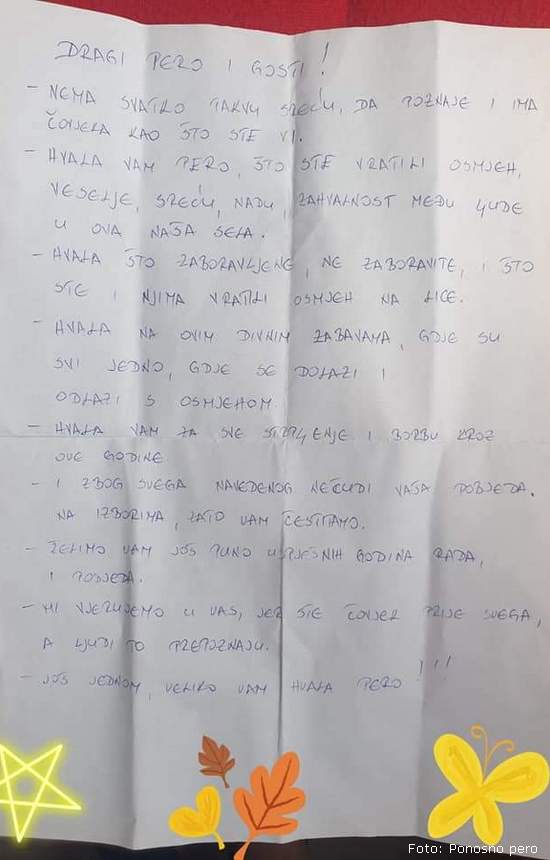 DRAGI PERO I GOSTI!
- NEMA SVATKO TAKVU SREĆU, DA POZNAJE I IMA
ČOVJEKA KAO ŠTO STE VI.
- HVALA VAM PERO, ŠTO STE VRATILI OSMJEH,
VESELJE, SREĆU, NADU, ZAHVALNOST MEĐU LJUDE
U OVA NAŠA SELA.
- HVALA ŠTO ZABORAVLJENE, NE ZABORAVITE, I ŠTO
STE I NJIMA VRATILI OSMJEH NA LICE.
- HVALA NA OVIM DIVNIM ZABAVAMA, GDJE SU
SVI JEDNO, GDJE SE DOLAZI I
ODLAZI S OSMJEHOM
- HVALA VAM ZA SVE STRPLJENJE I BORBU KROZ
OVE GODINE
- I ZBOG SVEGA NAVEDENOG NEČUDI VAŠA POBJEDA.
NA IZBORIMA, ZATO VAM ČESTITAMO.
- ŽELIMO VAM JOŠ PUNO USPJEŠNIH GODINA RADA,
I POBJEDA.
- MI VJERUJEMO U VAS, JER STE ČOVJEK PRIJE SVEGA,
A LJUDI TO PREPOZNAJU.
- JOŠ JEDNOM, VELIKO VAM HVALA PERO!!!
Foto: Ponosno pero